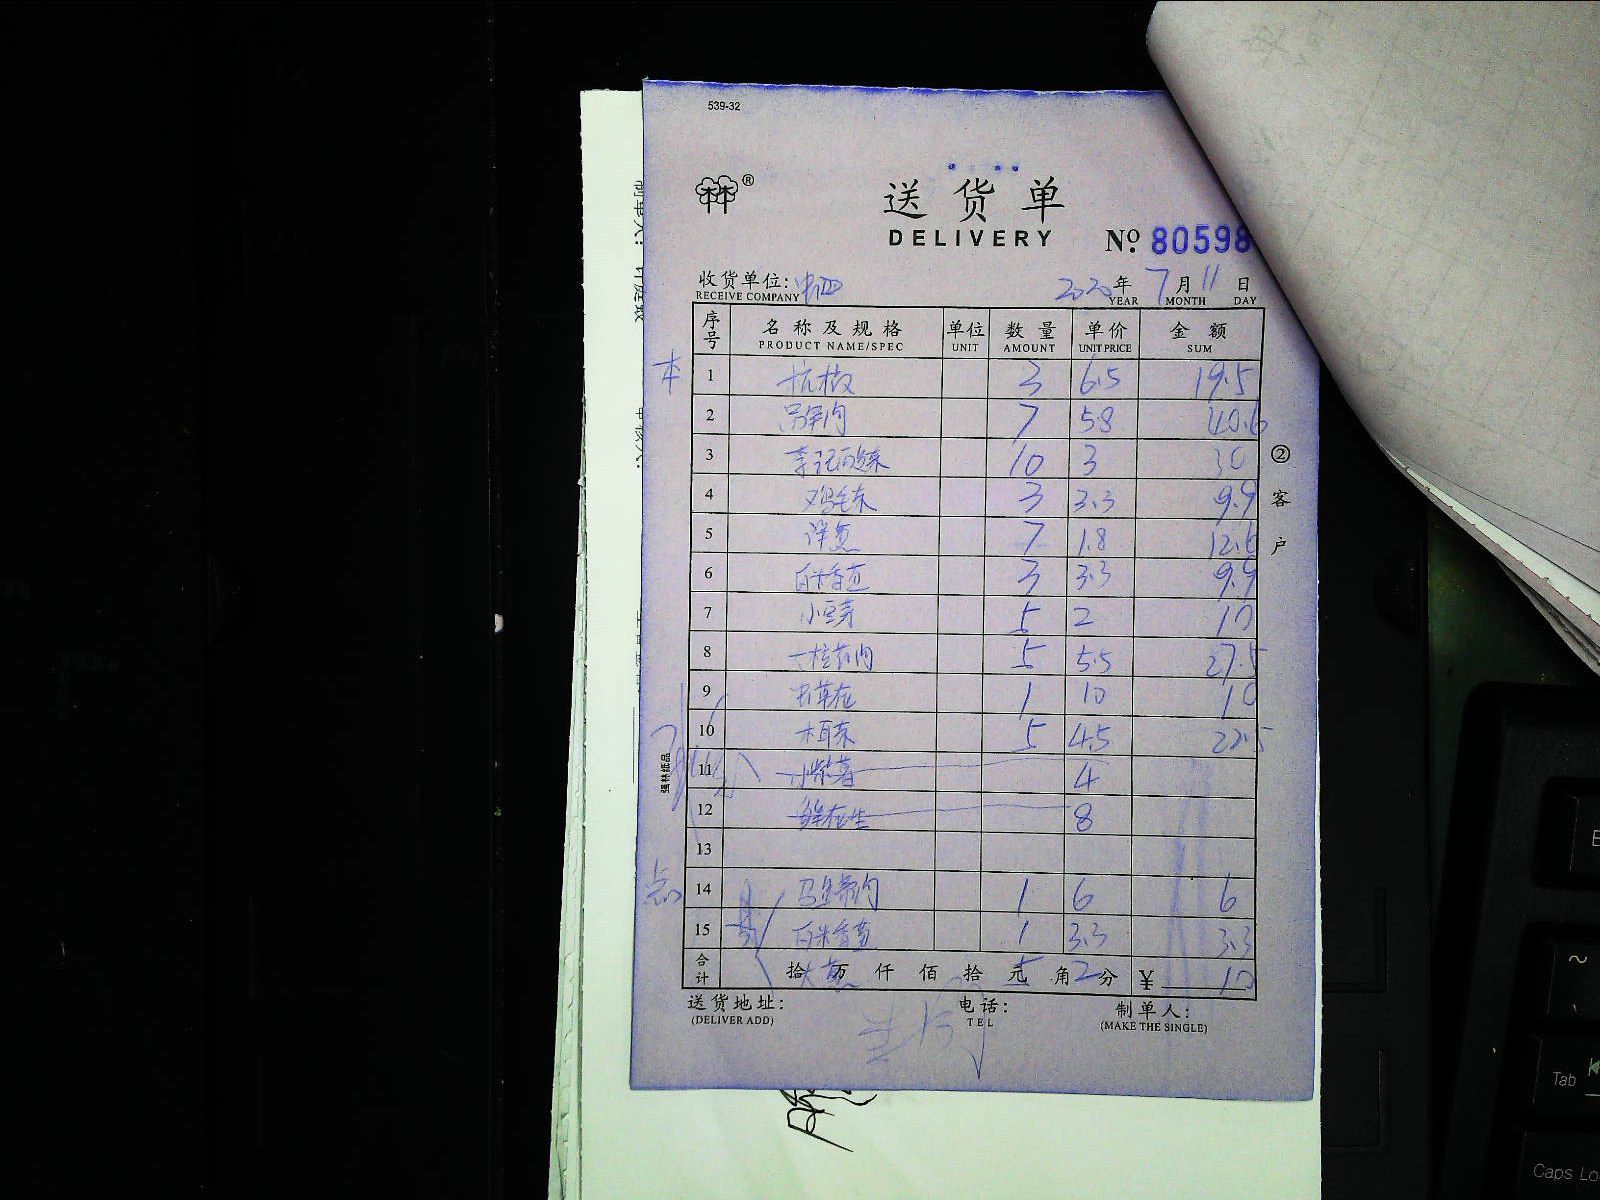 539-32
®
送货单
DELIVERY
No. 80598
收货单位:
RECEIVE COMPANY
2020年7月11日
YEAR MONTH DAY
序号 名称及规格 单位 数量 单价 金额
PRODUCT NAME/SPEC UNIT AMOUNT UNIT PRICE SUM
本 1 杭椒 3 6.5 19.5
2 7 5.8 40.6
3 10 3 30
4 鸡毛菜 3 3.3 9.9
5 洋葱 7 1.8 12.6
6 白米香芹 3 3.3 9.9
7 小豆芽 5 2 10
8 5 5.5 27.5
9 虫草花 1 10 10
10 木耳菜 5 4.5 22.5
11 小紫薯 4
12 鲜花生 8
13
14 马蹄肉 1 6 6
15 白米香芹 1 3.3 3.3
合计 拾万仟佰拾元角分 ¥
大葱 5 2 10
② 客户
强林纸品
送货地址:
(DELIVER ADD)
电话:
TEL
制单人:
(MAKE THE SINGLE)
~
Tab
Caps Lo